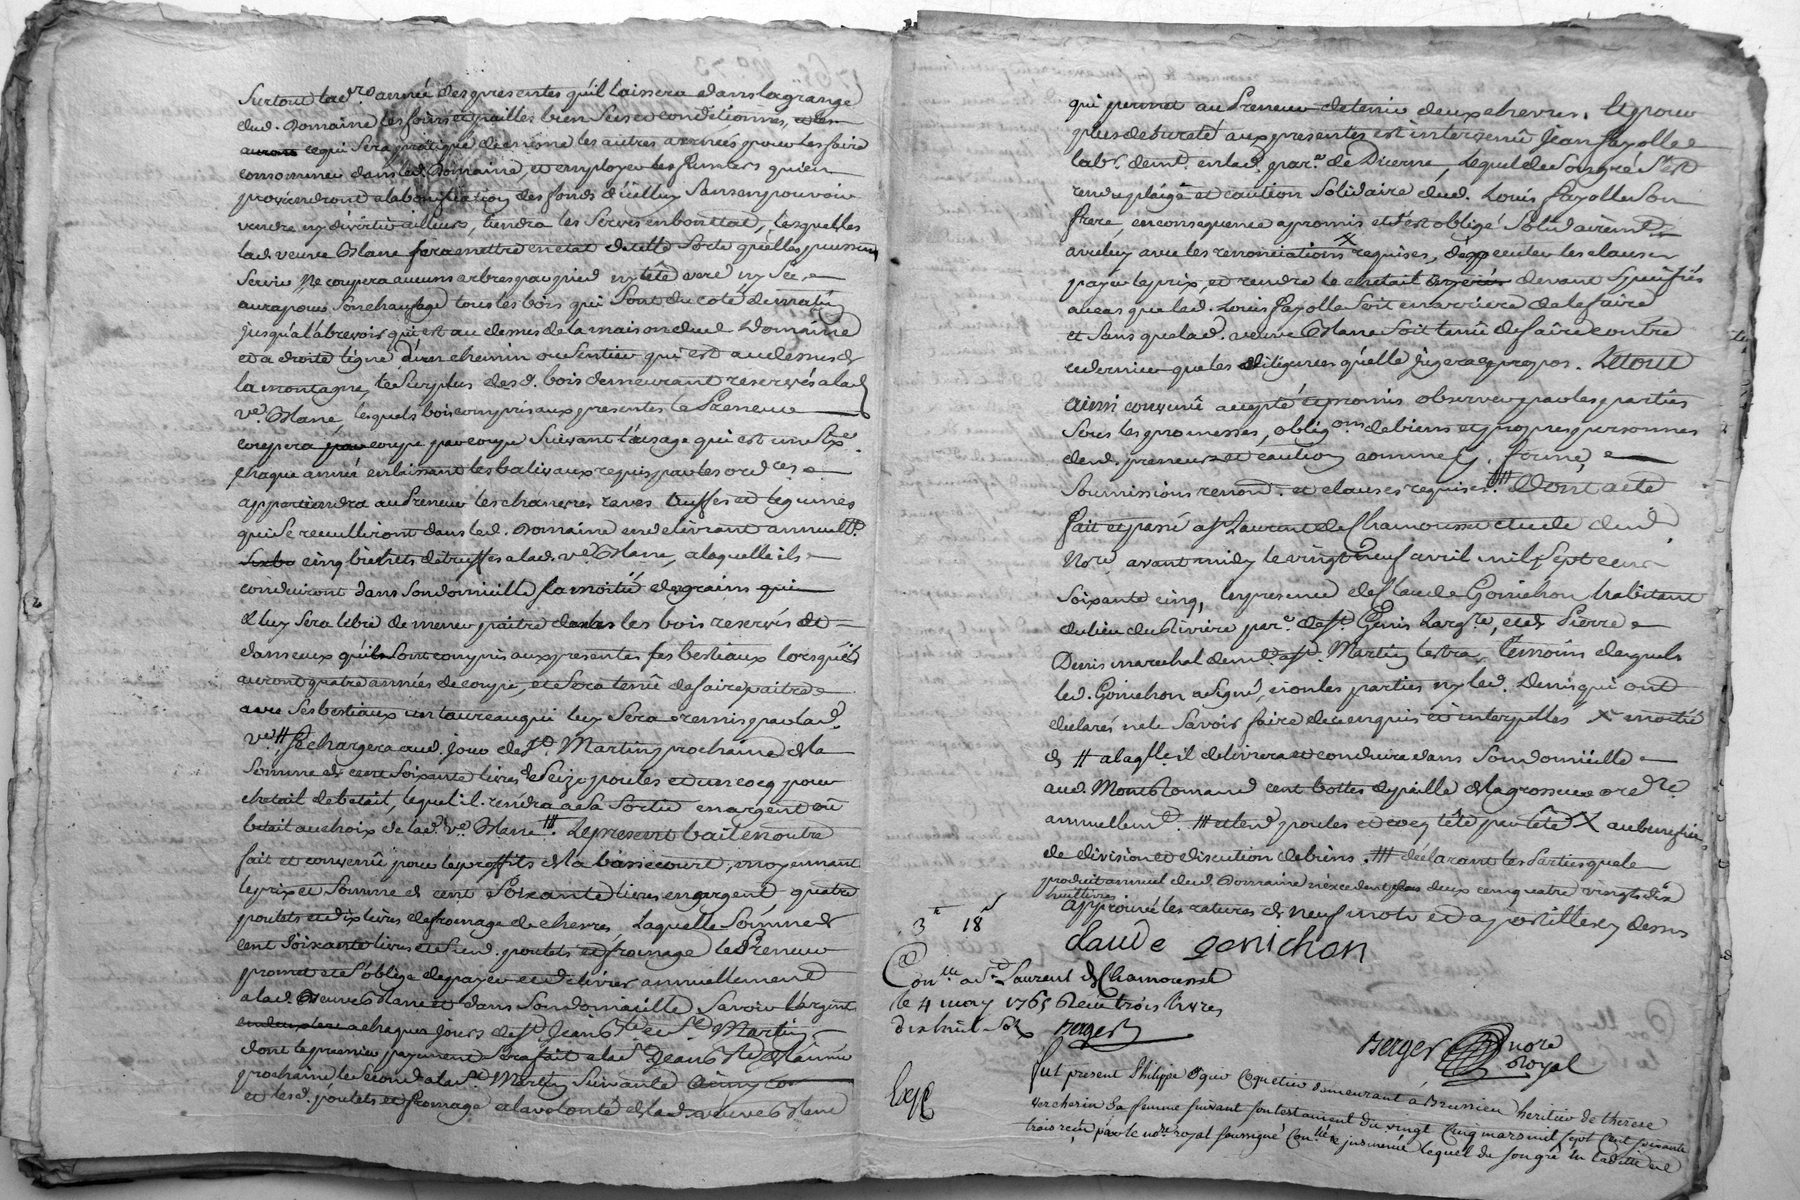 Surtout lad. re année des presentes qu'il laissera dans la grange
dud. Domaine les foins et pailles bien secs et conditionnés,
ce qui sera pratiqué de même les autres années pour les faire
consommer dans led. Domaine, et employer les fumiers qu'en
proviendront a la bonification des fonds d'icelluy Sans en pouvoir
vendre ny divertir ailleurs, tiendra les Serves en bon état, lesquelles
lad. veuve Blanc fera mettre en état de telle Sorte qu'elles puissent
Servir Ne coupera aucuns arbres par pied ny tête verd ny Sec
aura pour Son chaufage tous les bois qui Sont du coté de matin
jusqu'a l'abrevoir qui est au dessus de la maison dud. Domaine
et a droite ligne d'un chemin ou Sentier qui est au dessus de
la montagne, le Surplus desd. bois demeurant reservés a lad.
ve. Blanc, lesquels bois compris aux presentes le Preneur
coupera par coupe Suivant l'usage qui est un Sixe
chaque année en laissant les balivaux requis par les ord.ces
appartiendra au Preneur les chanvres raves truffes et legumes
qui Se recuilliront dans led. Domaine en delivrant annuellt.
cinq bichets de truffes a lad. ve. Blanc, a laquelle ils
conduiront dans Son domicille la moitié des grains
luy Sera libre de mener paitre dans les bois reservés et
dans ceux qui Sont compris aux presentes ses bestiaux lorsqu'ils
auront quatre années de coupe, et Sera tenû de faire paitre
avec Ses bestiaux un taureau qui luy Sera remis par lad.
ve. # Se chargera aud. jour de St. Martin prochaine de la
Somme de cent Soixante livres de Seize poules et un cocq pour
chetail de betail, lequel il rendra a Sa Sortie en argent ou
betail au choix de lad. ve. Blanc ### Le present bail en outre
fait et convenû pour les proffits de la bassecourt, moyennant
le prix et Somme de cent Soixante livres en argent, quatre
poulets et dix livres de fromage de chevres, Laquelle Somme de
cent Soixante livres et lesd. poulets et fromage le Preneur
promet et S'oblige de payer et delivrer annuellement
a lad. Veuve Blanc et dans Son domicille Savoir l'argent
a chaques jours de St. Jean Bte et St. Martin
dont le premier payement Sera fait a la St. Jean Bte de l'année
prochaine le Second a la St. Martin Suivante
et lesd. poulets et fromage a la volonté de lad. veuve Blanc
qui permet au Preneur de tenir deux chevres. Et pour
plus de Sureté aux presentes est intervenû Jean Fayolle
labr. demt. en lad. parse. de Dierme, Lequel de Son gré S'est
rendu pleige et caution Solidaire dud. Louis Fayolle Son
frere, en consequence a promis et S'est obligé Solidairemt.
avec luy avec les renonciations X requises, d'executer les clauses
payer le prix, et rendre le chetail devant Specifiés
au cas que led. Louis Fayolle Soit en arriere de le faire
et Sans que lad. veuve Blanc Soit tenûe de faire contre
ce dernier que les diligences qu'elle jugera apropos. Le tout
ainsi convenû accepté et promis observer par les parties
Sous les promesses, obligons de biens et propres personnes
desd. preneur et caution comme forme,
Soumissions renond. et clauses requises. ### Dont acte
fait et passé a St Laurent de Chamousset etude dud.
Nore. avant midy le vingt neuf avril mil Sept cent
Soixante cinq, En presence de Claude Gonichon habitant
du lieu du Riviere parse. de St. Genis Largre, et de Pierre
Denis marechal demt. a St. Martin Lestra, temoins desquels
led. Gonichon a Signé, et non les parties ny led. Denis qui ont
declarés ne le Savoir faire de ce enquis et interpellés X moitié
de # a laqlle il delivrera et conduira dans Son domicille
aud. Montromand cent bottes de paille de la grosseur ordre.
annuellemt. ## et lesd. poules et cocq tête par tête X au benefice
de division et discution de biens. ### declarant les Parties que le
produit annuel dud. Domaine n'excedent pas deux cent quatre vingt dix
huit livres
approuvé les ratures de neuf mots et apostilles cy dessus
3tt 18s
claude gonichon
Conlle a St Laurent de Chamousset
le 4 may 1765 Reçu trois livres
dix huit Sols Berger
Berger Nore
Royal
Exp
fut present Philippe Coquetier demeurant a Brussieu heritier de therese
vercherin Sa femme suivant son testament du vingt cinq mars mil sept cent soixante
trois reçu par le nore royal soussigné Conlle & insinué lequel de son gré en ladite